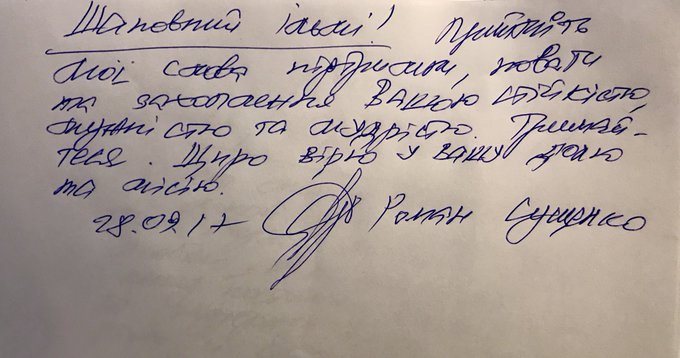 Шановний Ільмі! Прийміть
мої слова підтримки, поваги
та захоплення Вашою стійкістю,
мужністю та мудрістю. Тримай-
теся. Щиро вірю у Вашу долю
та місію.
28.09.17 Роман Сущенко